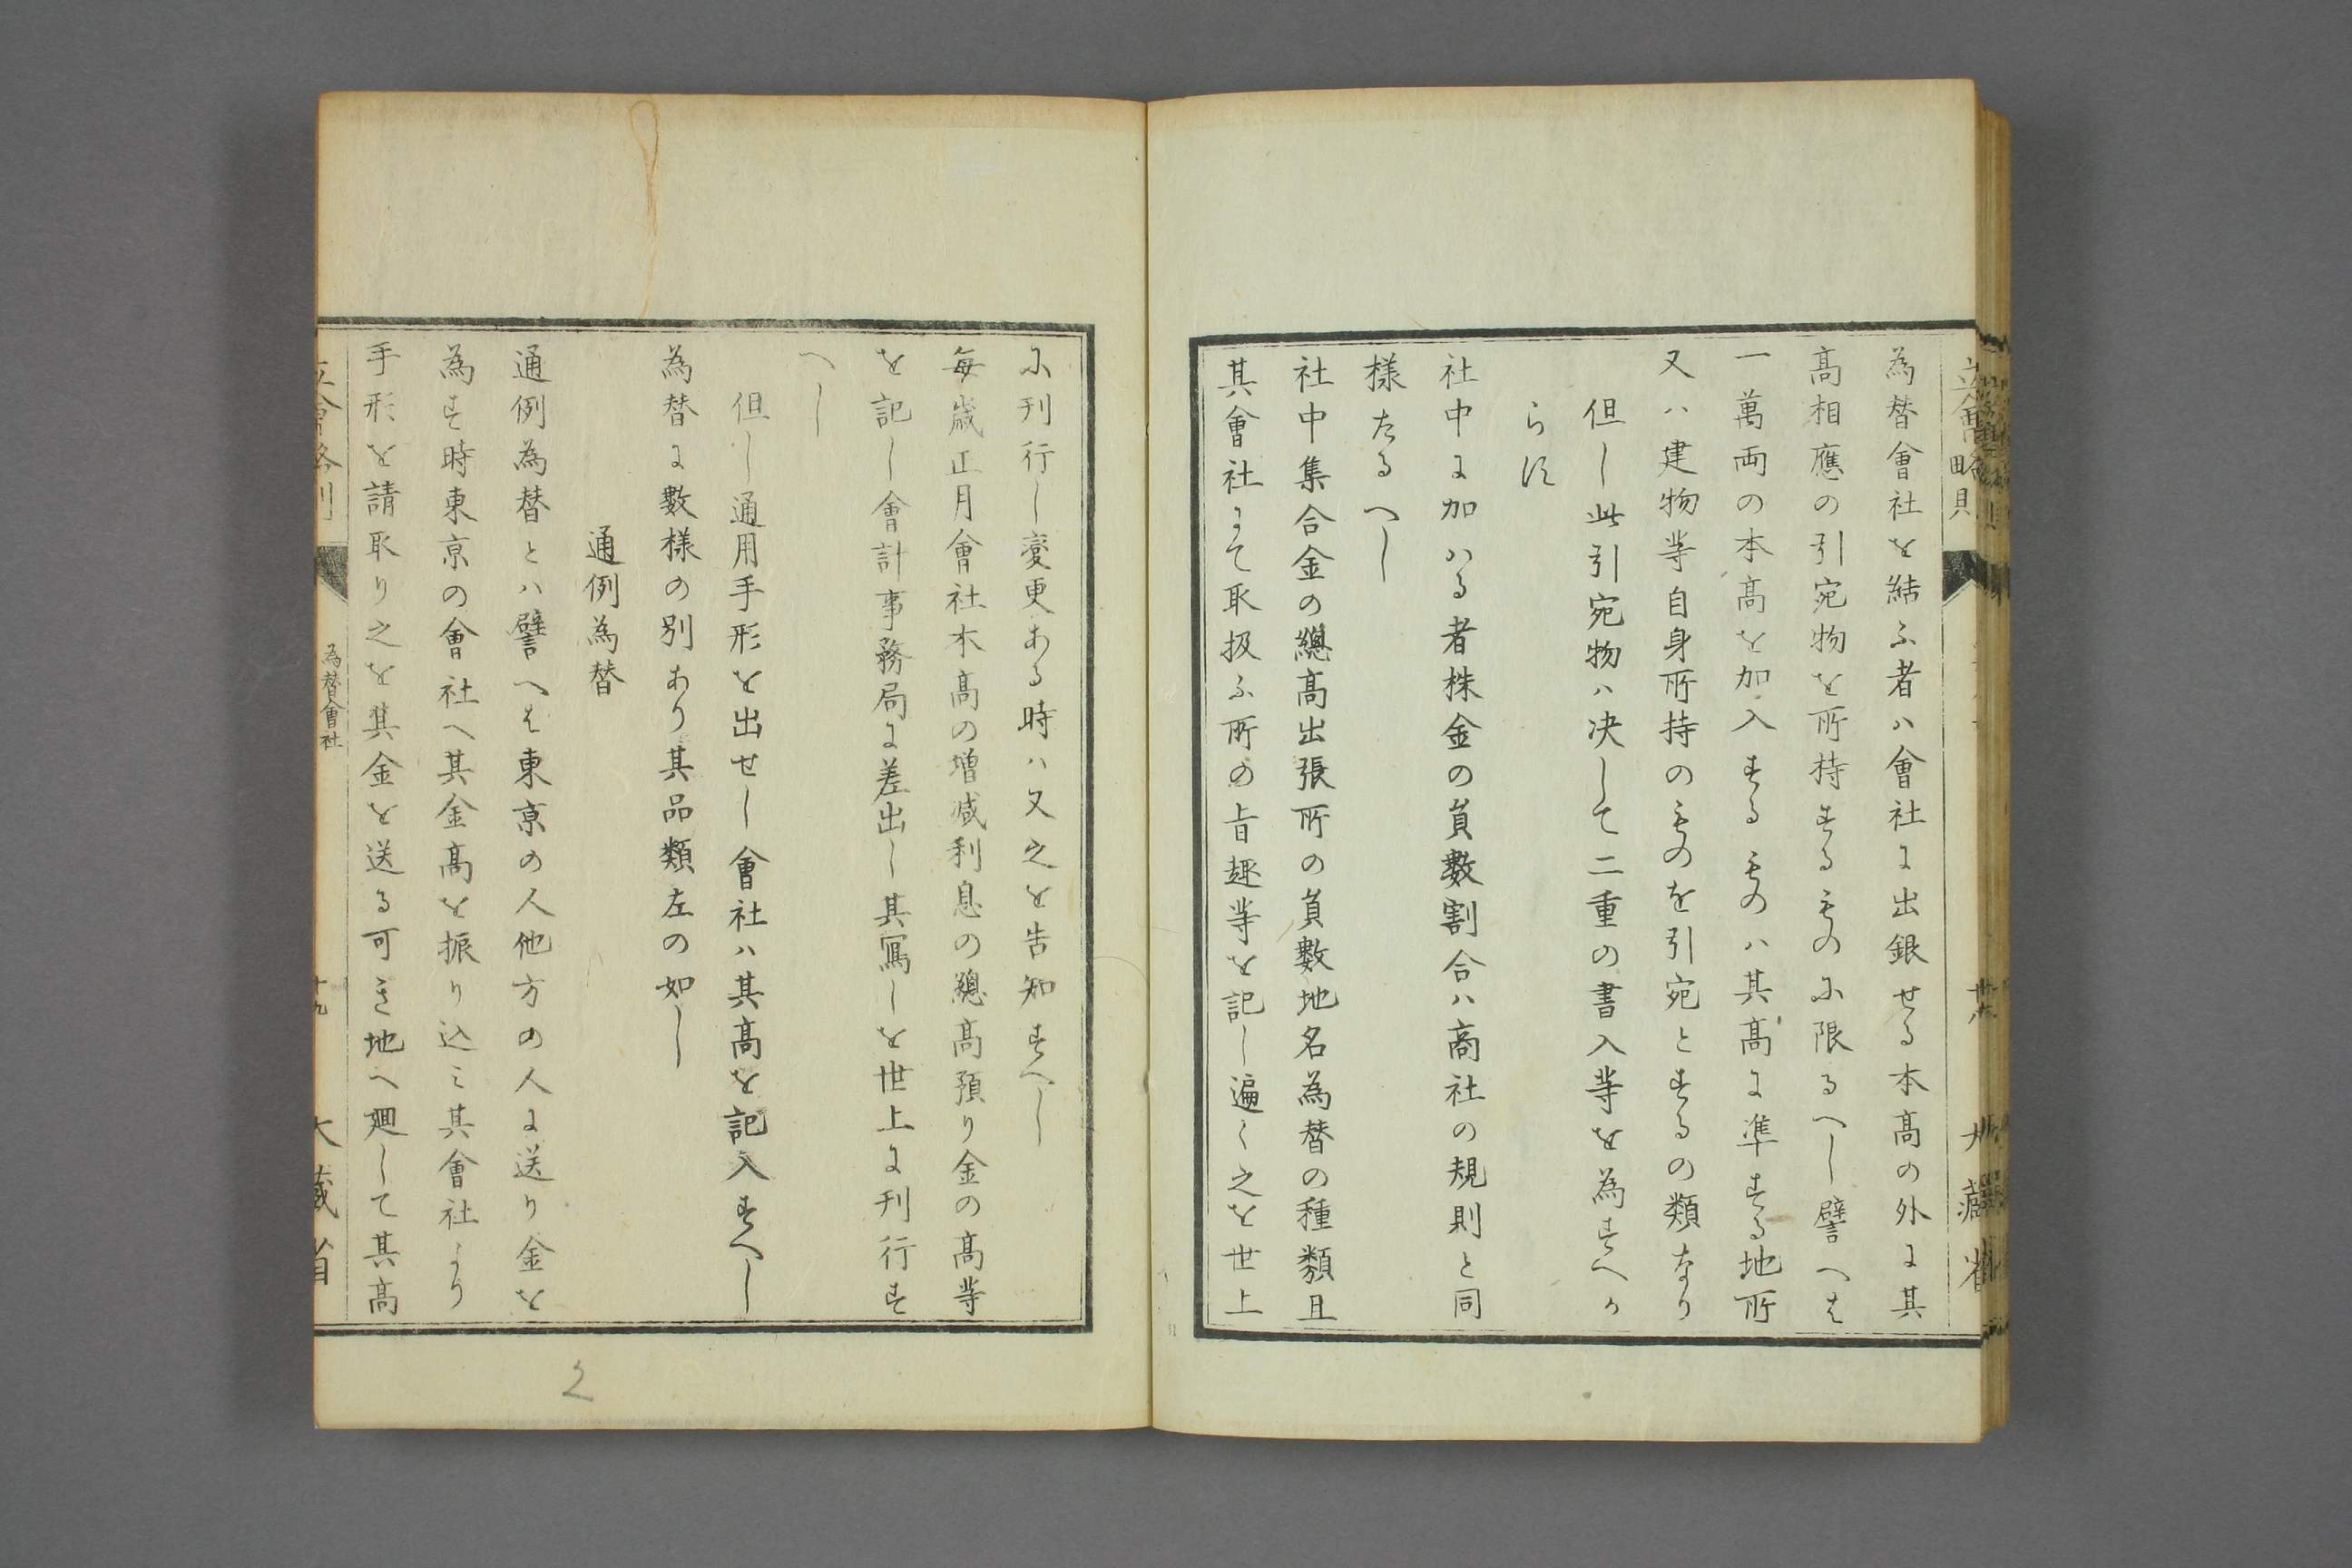 為替會社を結ふ者ハ會社に出銀せる本高の外に其
高相應の引宛物を所持するものに限るへし譬へは
一萬両の本高を加入するものハ其高に準する地所
又ハ建物等自身所持のものを引宛とするの類なり
但し此引宛物ハ决して二重の書入等を為すへか
らす
社中に加ハる者株金の員數割合ハ商社の規則と同
様たるへし
社中集合金の總高出張所の員數地名為替の種類且
其會社にて取扱ふ所の旨趣等を記し遍く之を世上
に刊行し變更ある時ハ又之を告知すへし
毎歳正月會社本高の増减利息の總高預り金の高等
を記し會計事務局に差出し其寫しを世上に刊行す
へし
但し通用手形を出せし會社ハ其高を記入すへし
為替に數様の別あり其品類左の如し
通例為替
通例為替とハ譬へは東京の人他方の人に送り金を
為す時東京の會社へ其金高を振り込ミ其會社より
手形を請取り之を其金を送る可き地へ廻して其高
立會略則
為替會社
十九
大藏省
2